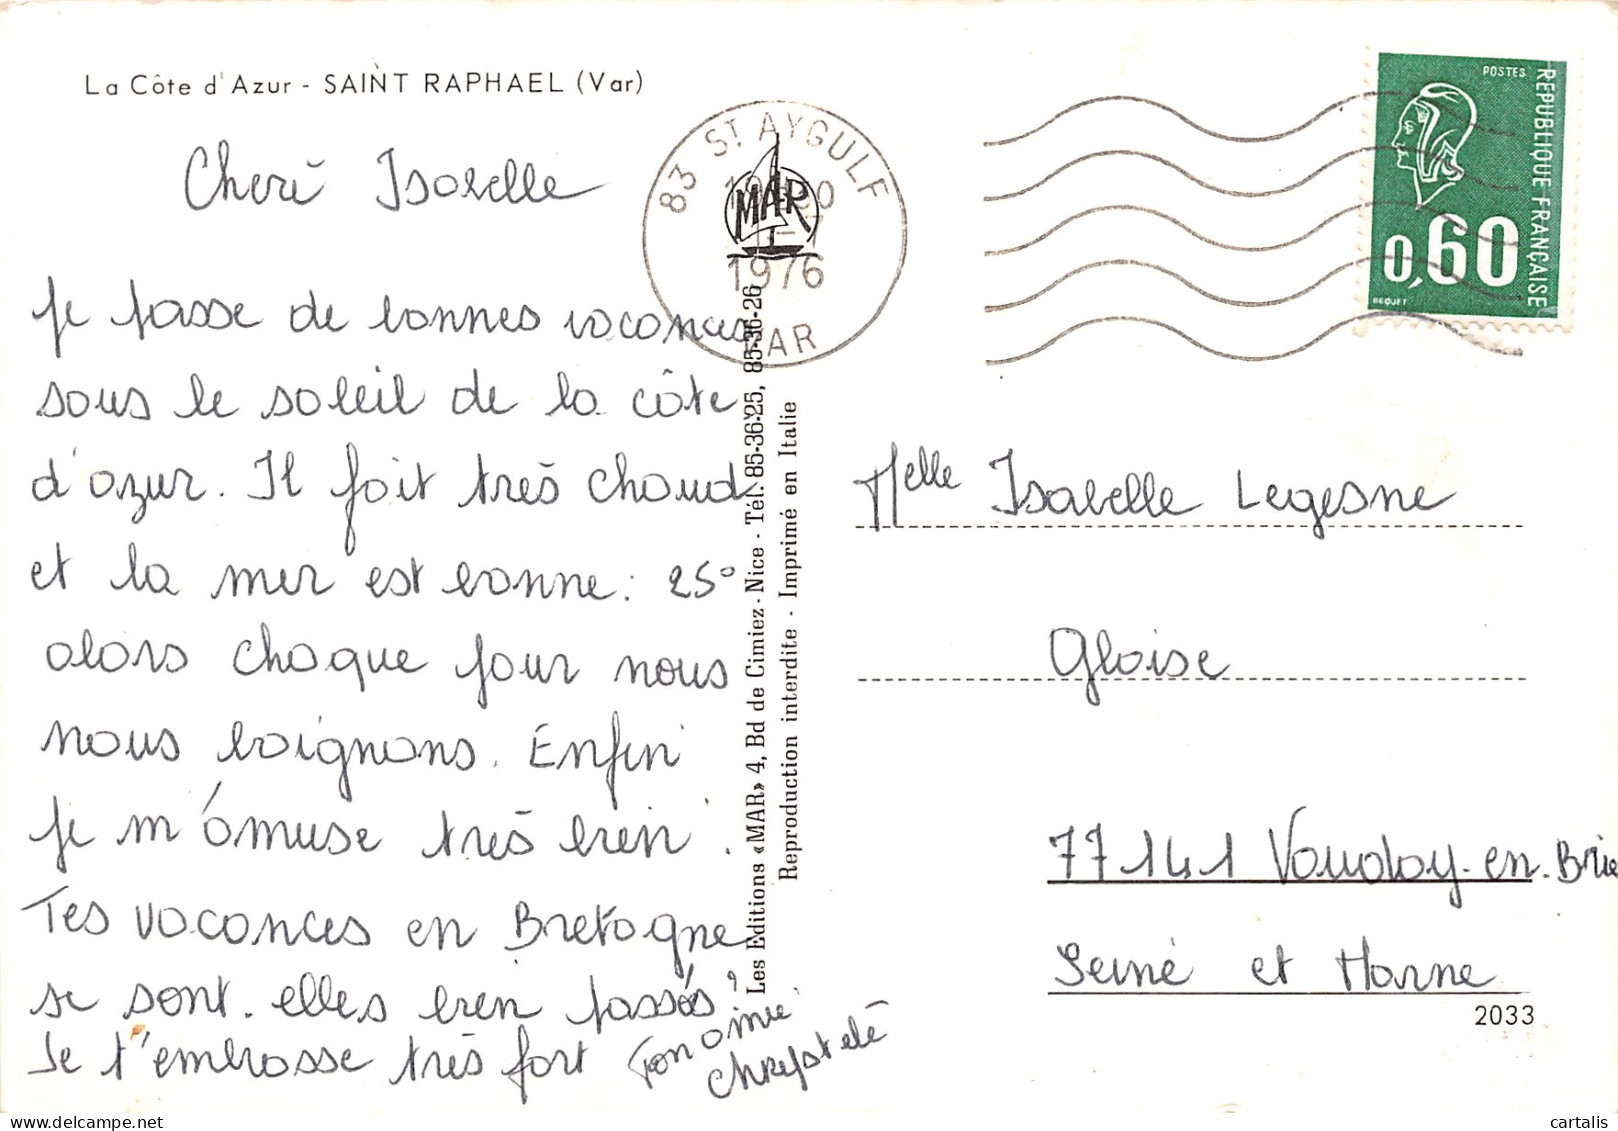 La Côte d'Azur - SAINT RAPHAEL (Var)
83 ST AYGULF
1976
VAR
MAR
POSTES
REPUBLIQUE FRANÇAISE
0,60
BEQUET
Cheré Isabelle
je passe de bonnes vacances
sous le soleil de la côte
d'azur. Il fait très chaud
et la mer est bonne: 25°
alors chaque jour nous
nous baignons. Enfin
je m'amuse très bien.
Tes vacances en Bretagne
se sont. elles bien passés?
Je t'embrasse très fort
Ton amie
Chrystelé
Les Editions «MAR» 4, Bd de Cimiez - Nice - Tél. 85-36-25, 85-36-26
Reproduction interdite - Imprimé en Italie
Melle Isabelle Legesne
Gloise
77141 Vaudoy-en-Brie
Seiné et Marne
2033
cartalis